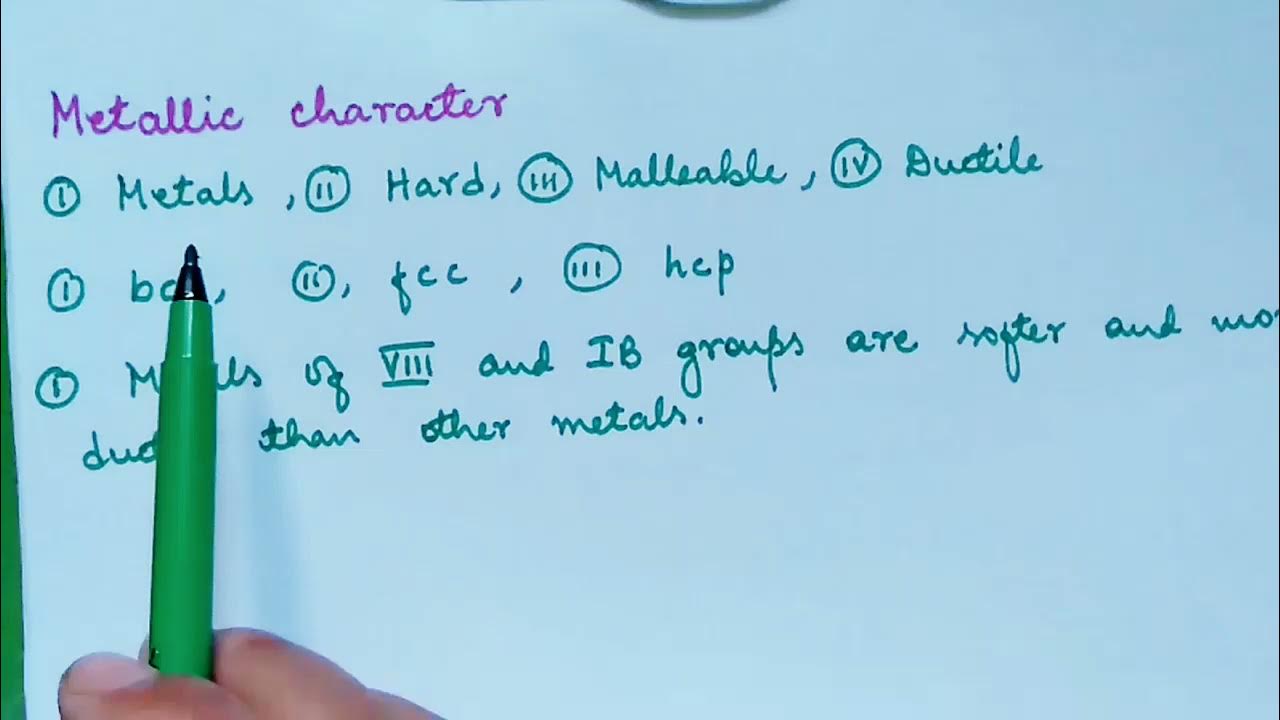 Metallic character
I Metals, II Hard, III Malleable, IV Ductile
I II, fcc, III hcp
I of VIII and IB groups are softer and
than other metals.